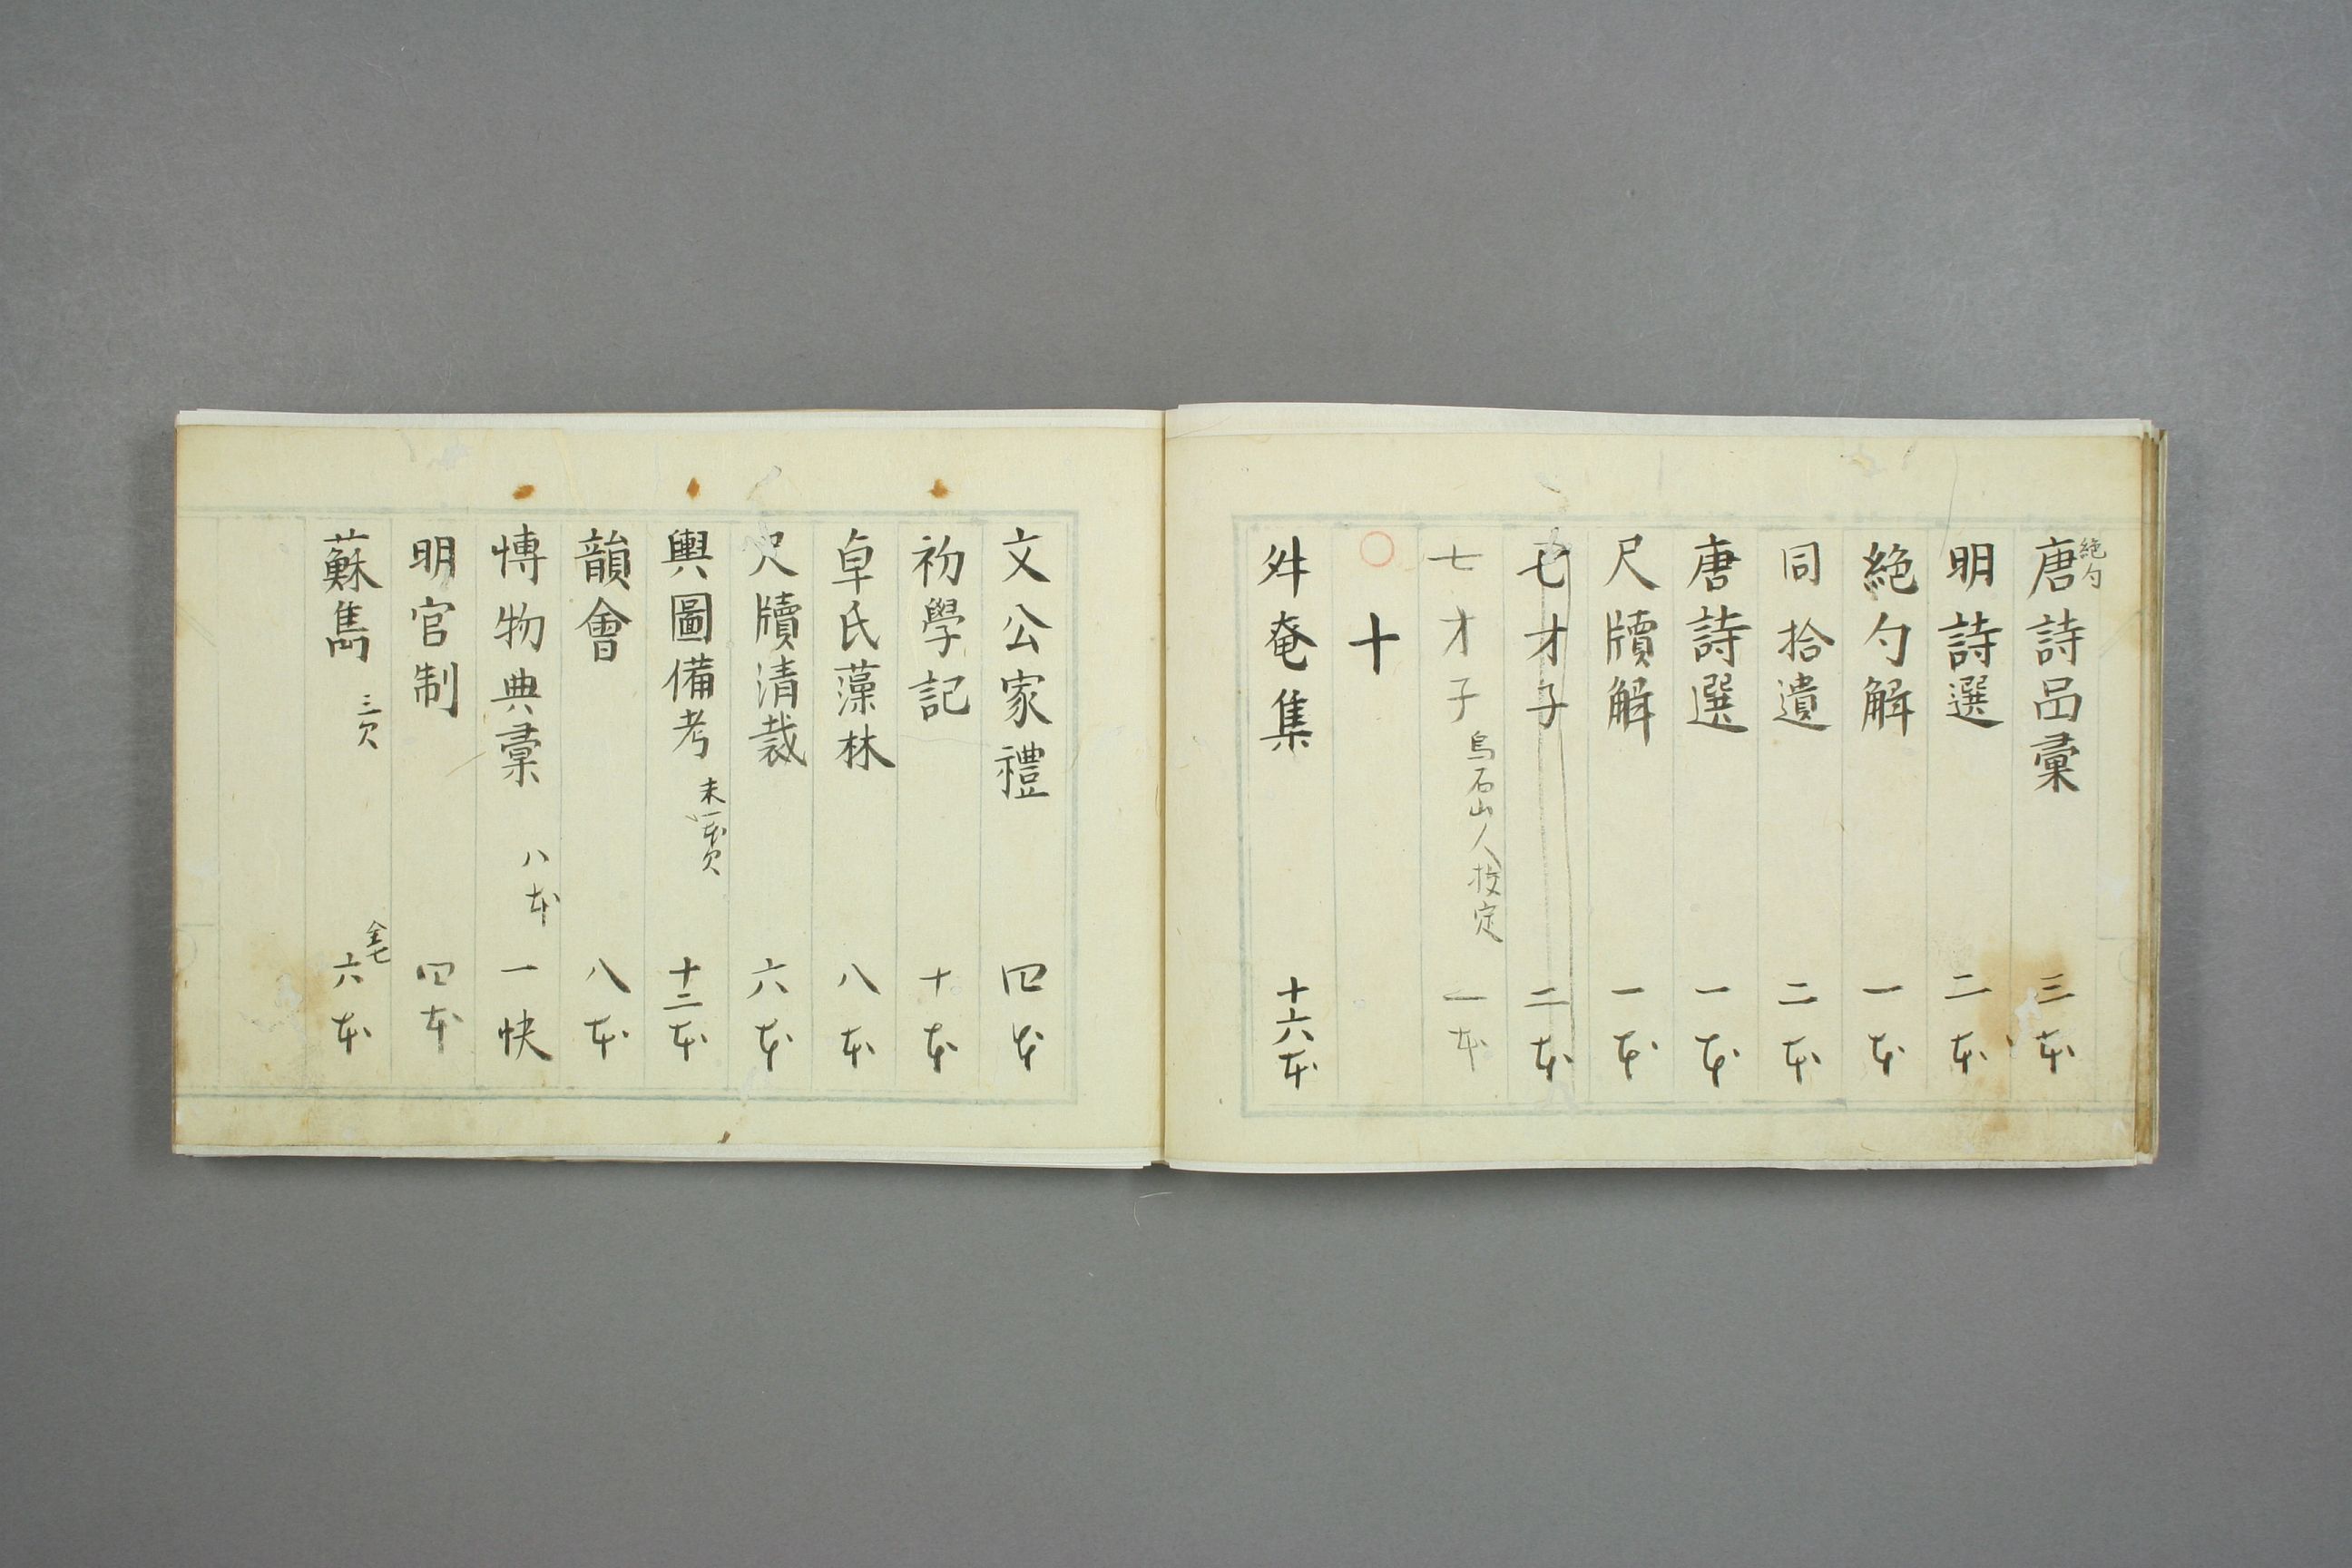 絶句
唐詩品彙 三本
明詩選 二本
絶句解 一本
同拾遺 二本
唐詩選 一本
尺牘解 一本
七才子 二本
七才子 烏石山人校定 一本
〇 十
升菴集 十六本
文公家禮 四本
初學記 十本
卓氏藻林 八本
尺牘清裁 六本
輿圖備考 末一本欠 十二本
韻會 八本
博物典彙 八本 一帙
明官制 四本
蘇雋 三欠 全七 六本